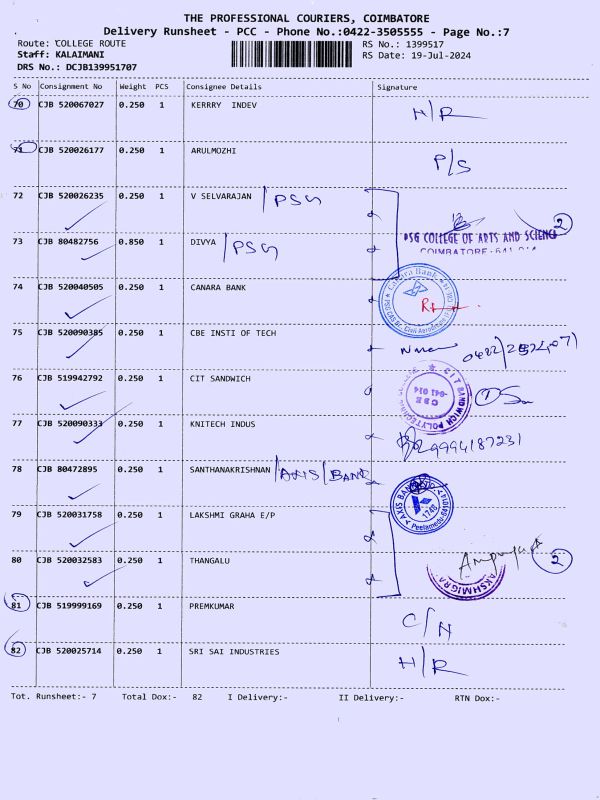 THE PROFESSIONAL COURIERS, COIMBATORE
Delivery Runsheet - PCC - Phone No.:0422-3505555 - Page No.:7
Route: COLLEGE ROUTE RS No.: 1399517
Staff: KALAIMANI RS Date: 19-Jul-2024
DRS No.: DCJB139951707
S No Consignment No Weight PCS Consignee Details Signature
70 CJB 520067027 0.250 1 KERRRY INDEV H/R
71 CJB 520026177 0.250 1 ARULMOZHI P/S
72 CJB 520026235 0.250 1 V SELVARAJAN /PSG
2
PSG COLLEGE OF ARTS AND SCIENCE
COIMBATORE-641 014
73 CJB 80482756 0.850 1 DIVYA /PSG
74 CJB 520040505 0.250 1 CANARA BANK
Canara Bank
75 CJB 520090385 0.250 1 CBE INSTI OF TECH
76 CJB 519942792 0.250 1 CIT SANDWICH
CIT SANDWICH POLYTECHNIC COLLEGE
CBE
-641 014
77 CJB 520090333 0.250 1 KNITECH INDUS 9994187231
78 CJB 80472895 0.250 1 SANTHANAKRISHNAN /AXIS/BANK
AXIS BANK
1746
79 CJB 520031758 0.250 1 LAKSHMI GRAHA E/P
80 CJB 520032583 0.250 1 THANGALU
2
81 CJB 519999169 0.250 1 PREMKUMAR C/N
82 CJB 520025714 0.250 1 SRI SAI INDUSTRIES H/R
Tot. Runsheet:- 7 Total Dox:- 82 I Delivery:- II Delivery:- RTN Dox:-